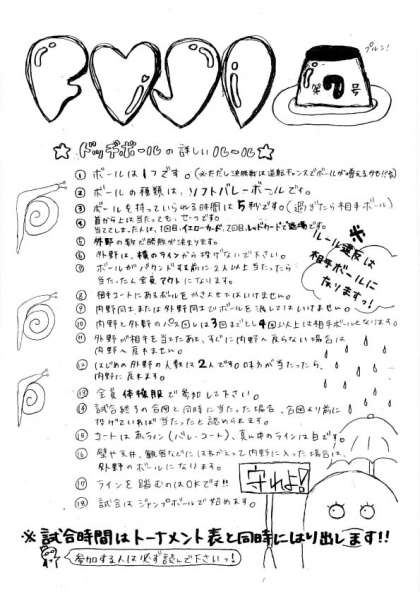 FUJI
プルン!
第7号
☆ドッチボールの詳しいルール☆
① ボールは1つです。(※ただし決勝戦は逆転チャンスでボールが増えるかも!?)
② ボールの種類は、ソフトバレーボールです。
③ ボールを持っていられる時間は5秒です。(過ぎたら相手ボール)
④ 首から上は当たっても、セーフです。
当ててしまった人は、1回目、イエローカード、2回目、レッドカードで退場です。
⑤ 外野の数で勝敗が決まります。
⑥ 外野は、横のラインから投げないで下さい。
⑦ ボールがバウンドする前に2人以上当たったら
当たった人全員アウトになります。
⑧ 相手コートにあるボールをかきよせてはいけません。
⑨ 内野同士または外野同士でボールを渡してはいけません。
⑩ 内野と外野のパス回しは3回までとし4回以上は相手ボールとなります。
⑪ 外野が相手を当てたあと、すぐに内野へ戻らない場合は
内野へ戻れません。
⑫ はじめの外野の人数は2人です。味方が当たったら、
内野に戻れます。
⑬ 全員体操服で参加して下さい。
⑭ 試合終了の合図と同時に当たった場合、合図より前に
投げていれば当たったと認められます。
⑮ コートは赤ライン(バレーコート)、真ん中のラインは白です。
⑯ 壁や天井、観客などにはねかえって内野に入った場合は、
外野のボールになります。
⑰ ラインを踏むのはOKです!!
⑱ 試合はジャンプボールで始めます。
※ルール違反は
相手ボールに
なりますっ!
守れよ!
※試合時間はトーナメント表と同時にはり出します!!
参加する人は必ず読んで下さいっ!